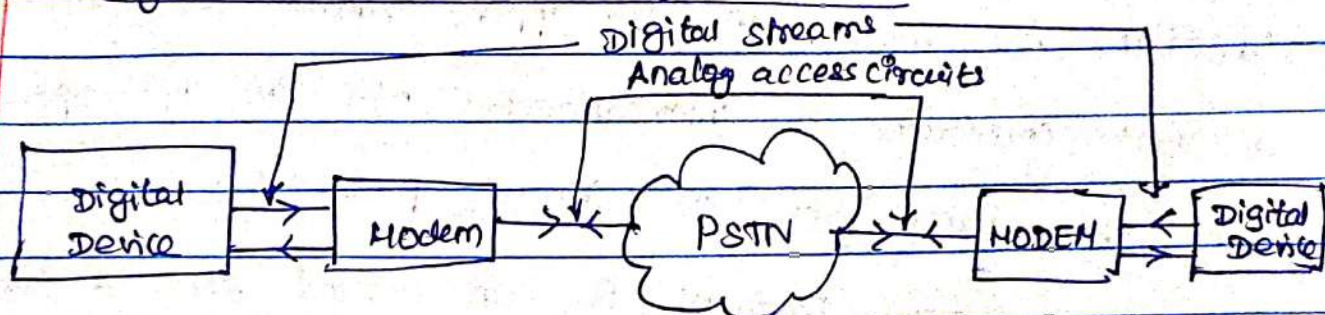 Digital streams
Analog access circuits
Digital
Device
Modem
PSTN
MODEM
Digital
Device